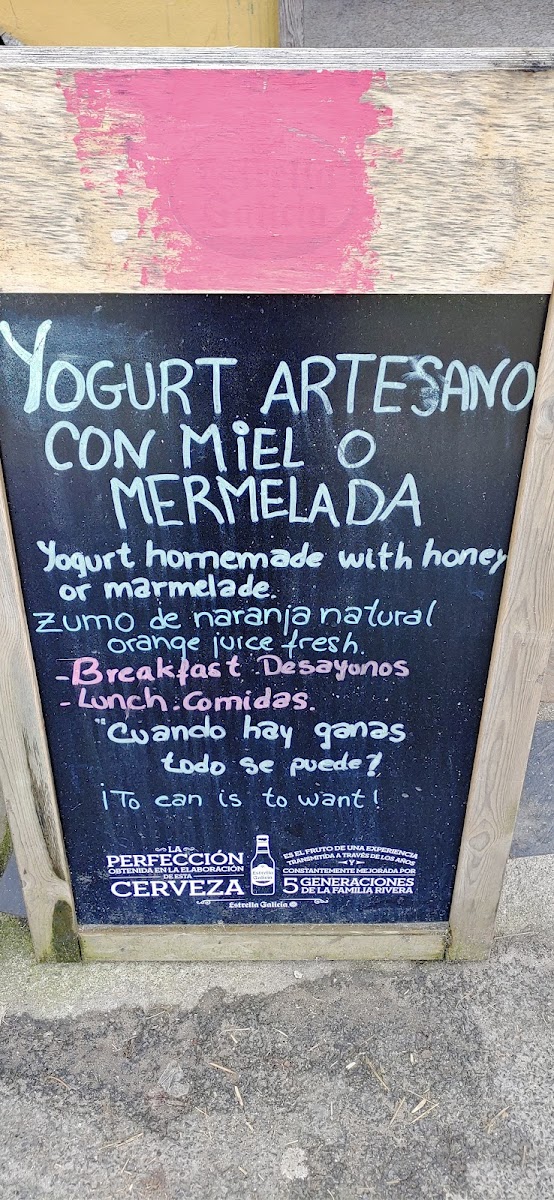 YOGURT ARTESANO
CON MiEL O
MERMELADA
Yogurt homemade with honey
or marmelade.
Zumo de naranja natural
orange juice fresh.
- Breakfast. Desayunos
- Lunch. Comidas.
"Cuando hay ganas
todo se puede?
¡To can is to want!
LA
PERFECCIÓN
OBTENIDA EN LA ELABORACIÓN
DE ESTA
CERVEZA
Estrella Galicia
ES EL FRUTO DE UNA EXPERIENCIA
TRANSMITIDA A TRAVÉS DE LOS AÑOS
Y
CONSTANTEMENTE MEJORADA POR
5 GENERACIONES
DE LA FAMILIA RIVERA
Estrella Galicia